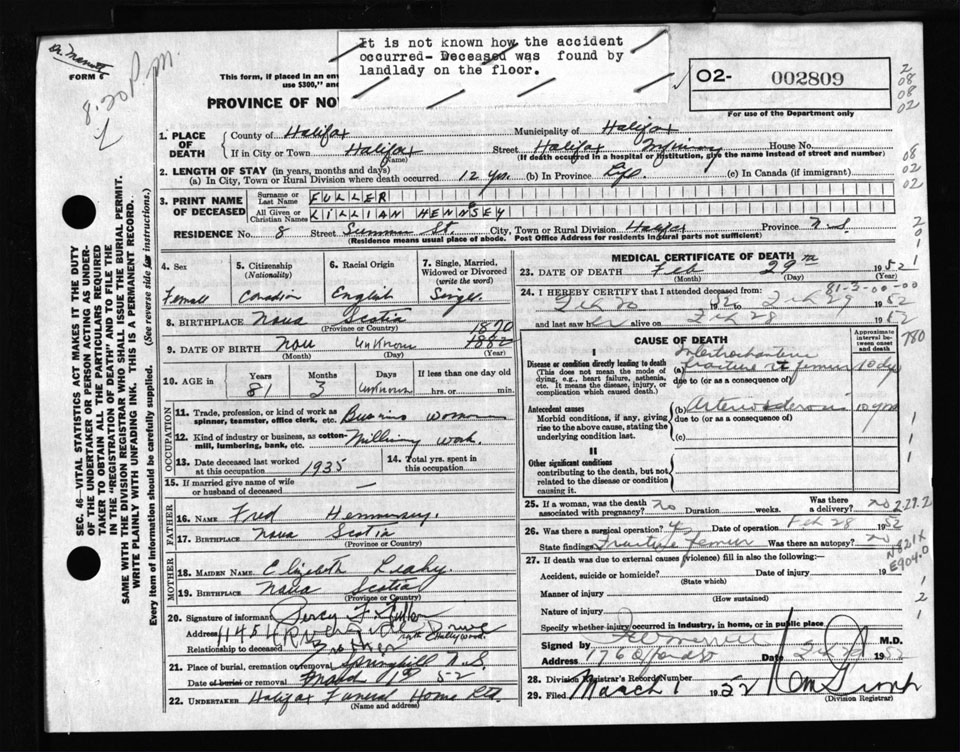 Dr. Merritt
FORM 6
8.20 P.m.
L
It is not known how the accident
occurred- Deceased was found by
landlady on the floor.
This form, if placed in an env
use $300," and
PROVINCE OF NO
O2- 002809
For use of the Department only
2
08
08
02
1. PLACE OF DEATH
County of Halifax Municipality of Halifax
If in City or Town Halifax Street Halifax Infirmary House No.
(Name) (If death occurred in a hospital or institution, give the name instead of street and number)
2. LENGTH OF STAY (in years, months and days)
(a) In City, Town or Rural Division where death occurred. 12 yrs. (b) In Province Life (c) In Canada (if immigrant)
08
02
02
3. PRINT NAME OF DECEASED
Surname or Last Name FULLER
All Given or Christian Names LILLIAN HENNSEY
RESIDENCE No. 8 Street Summer St. City, Town or Rural Division Halifax Province N.S.
(Residence means usual place of abode. Post Office Address for residents in rural parts not sufficient)
SEC. 46—VITAL STATISTICS ACT MAKES IT THE DUTY
OF THE UNDERTAKER OR PERSON ACTING AS UNDER-
TAKER TO OBTAIN ALL THE PARTICULARS REQUIRED
IN THE "REGISTRATION OF DEATH" AND TO FILE THE
SAME WITH THE DIVISION REGISTRAR WHO SHALL ISSUE THE BURIAL PERMIT.
WRITE PLAINLY WITH UNFADING INK. THIS IS A PERMANENT RECORD.
Every item of information should be carefully supplied. (See reverse side for instructions.)
4. Sex
Female
5. Citizenship
(Nationality)
Canadian
6. Racial Origin
English
7. Single, Married,
Widowed or Divorced
(write the word)
Single
8. BIRTHPLACE Nova Scotia
(Province or Country)
1870
9. DATE OF BIRTH Nov unknown 1882
(Month) (Day) (Year)
10. AGE in Years Months Days If less than one day old
81 3 unknown hrs. or min.
OCCUPATION
11. Trade, profession, or kind of work as
spinner, teamster, office clerk, etc. Business woman
12. Kind of industry or business, as cotton-
mill, lumbering, bank, etc. Millinery work.
13. Date deceased last worked
at this occupation 1935
14. Total yrs. spent in
this occupation
15. If married give name of wife
or husband of deceased —
FATHER
16. NAME Fred Hennessey.
17. BIRTHPLACE Nova Scotia
(Province or Country)
MOTHER
18. MAIDEN NAME Elizabeth Leahy.
19. BIRTHPLACE Nova Scotia
(Province or Country)
20. Signature of informant Percy F. Fuller
Address 11454 Drive
North Hollywood.
Relationship to deceased Brother
21. Place of burial, cremation or removal Springhill N.S.
Date of burial or removal March 1st 52
22. UNDERTAKER Halifax Funeral Home Ltd.
(Name and address)
MEDICAL CERTIFICATE OF DEATH
23. DATE OF DEATH Feb 29th 1952
(Month) (Day)
81-3-00-00
24. I HEREBY CERTIFY that I attended deceased from:
Feb 20 1952 to Feb 29 1952
and last saw her alive on Feb 28 1952
CAUSE OF DEATH
Approximate
interval between
onset
and death
780
I
Disease or condition directly leading to death
(This does not mean the mode of
dying, e.g., heart failure, asthenia,
etc. It means the disease, injury, or
complication which caused death.)
Intertrochanteric
(a) fracture rt femur 10 dys
due to (or as a consequence of)
Antecedent causes
Morbid conditions, if any, giving
rise to the above cause, stating the
underlying condition last.
(b) Arteriosclerosis 10 yrs
due to (or as a consequence of)
(c)
II
Other significant conditions
contributing to the death, but not
related to the disease or condition
causing it.
25. If a woman, was the death
associated with pregnancy? no Duration weeks. Was there
a delivery? no
26. Was there a surgical operation? Date of operation Feb 28 1952
State findings Fracture femur Was there an autopsy? no
N821X
E904.0
27. If death was due to external causes (violence) fill in also the following:—
Accident, suicide or homicide? Date of injury 19
(State which)
Manner of injury
(How sustained)
Nature of injury
Specify whether injury occurred in Industry, in home, or in public place
Signed by M.D.
Address 176 Date Feb 1952
28. Division Registrar's Record Number
29. Filed March 1 1952
(Division Registrar)